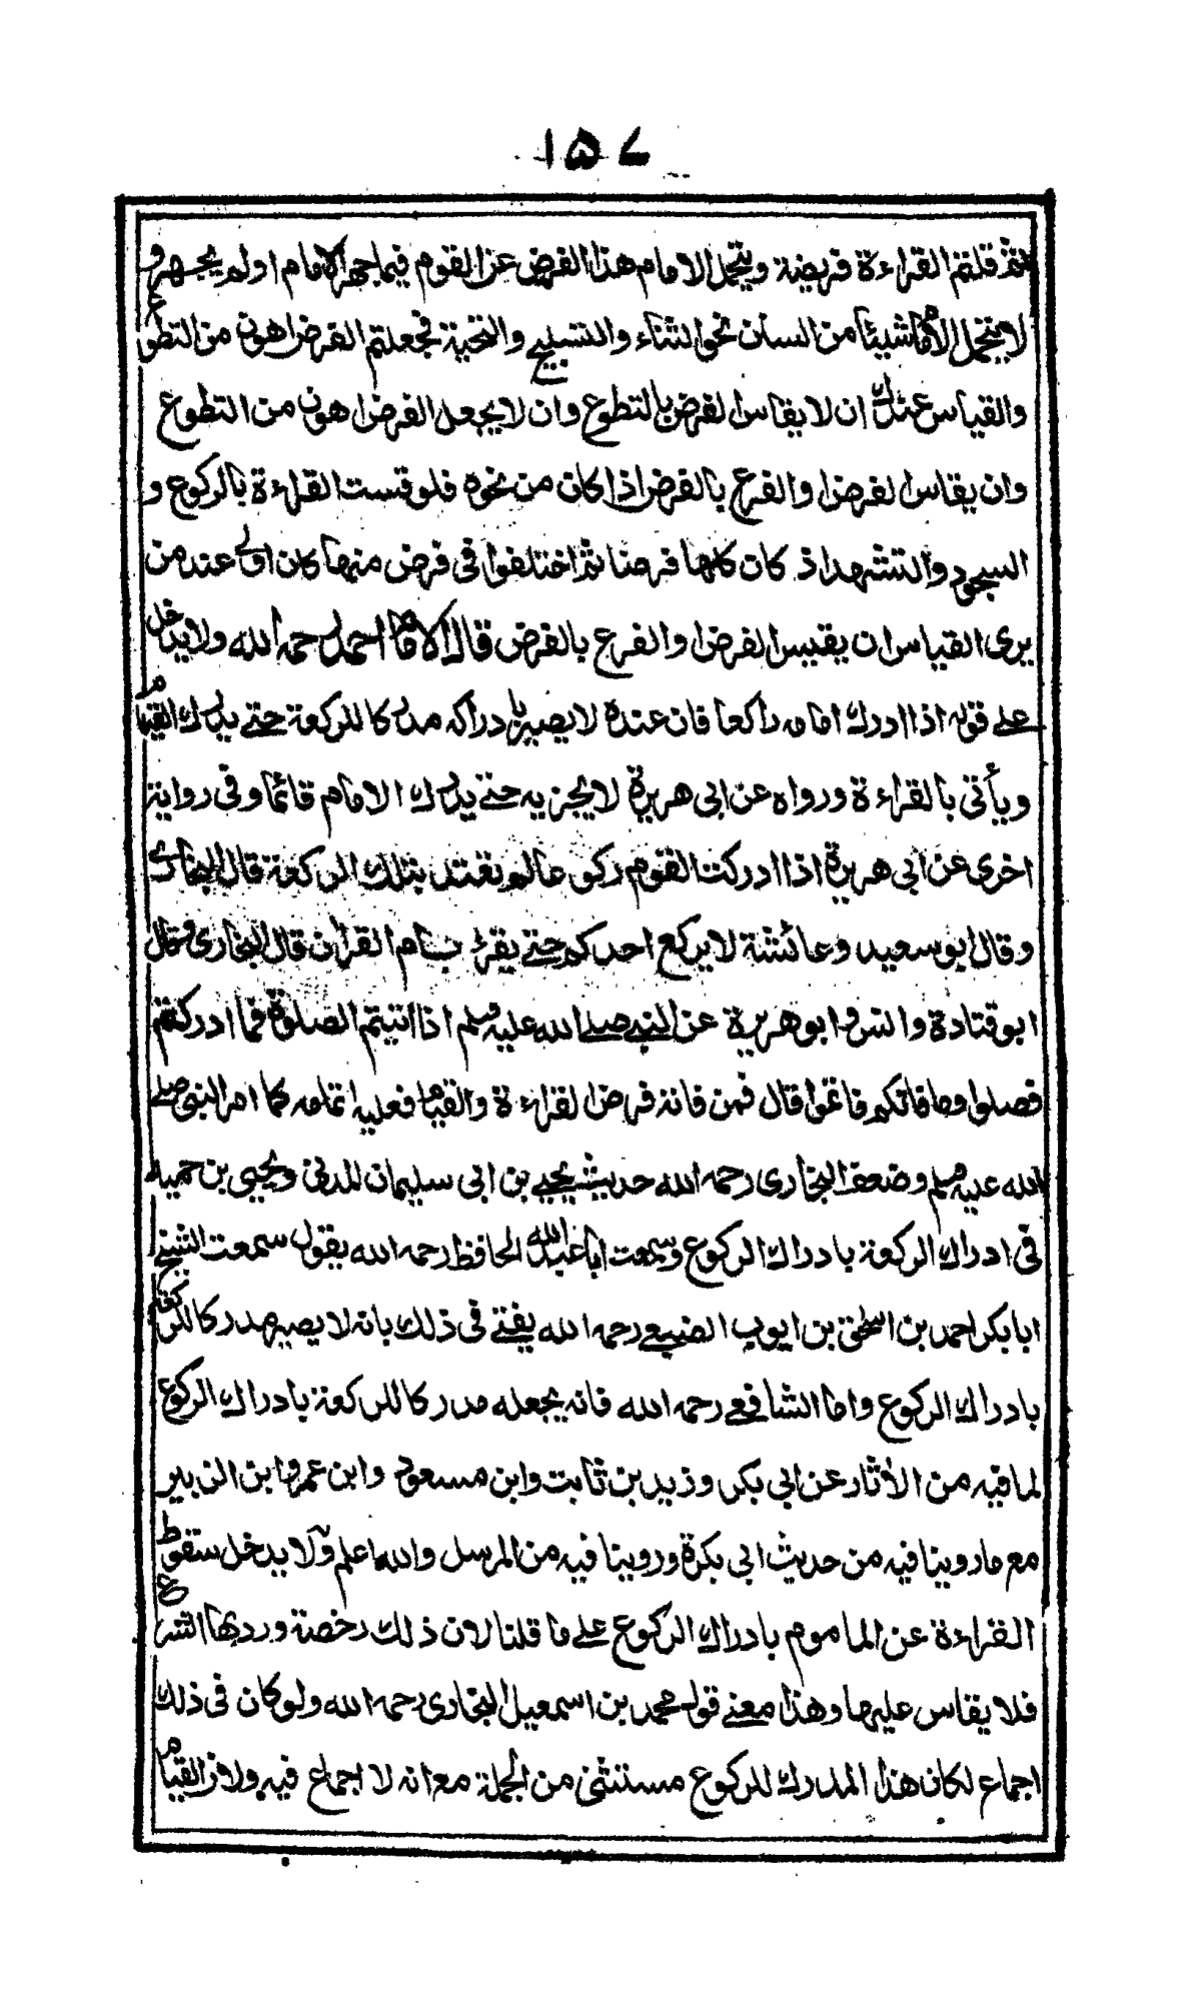 ١٥٧
ثم قلتم القراءة فريضة ويتحمل الامام هذا الفرض عن القوم فيما جهر الامام او لم يجهر و
لا يتحمل الامام شيئا من السنن نحو الثناء والتسبيح والتحية فجعلتم الفرض اهون من التطوع
والقياس عندك ان لا يقاس الفرض بالتطوع وان لا يجعل الفرض اهون من التطوع
وان يقاس الفرض والفرع بالفرض اذا كان من نحوه فلو قست القراءة بالركوع و
السجود والتشهد اذ كان كلها فرضا ثم اختلفوا في فرض منها كان اولى عند من
يرى القياس ان يقيس الفرض والفرع بالفرض قال الامام احمد رحمه الله ولا يدخل
على قوله اذا ادرك امامه راكعا فان عنده لا يصير بادراكه مدركا للركعة حتى يدرك القيام
ويأتي بالقراءة ورواه عن ابي هريرة لا يجزيه حتى يدرك الامام قائما وفي رواية
اخرى عن ابي هريرة اذا ادركت القوم ركوعا لم تعتد بتلك الركعة قال البخاري
وقال ابو سعيد وعائشة لا يركع احدكم حتى يقرأ بام القرآن قال البخاري وقال
ابو قتادة وانس وابو هريرة عن النبي صلى الله عليه وسلم اذا اتيتم الصلوة فما ادركتم
فصلوا وما فاتكم فاتموا قال فمن فاته فرض القراءة والقيام فعليه اتمامه كما امر النبي صلى
الله عليه وسلم وضعف البخاري رحمه الله حديث يحيى بن ابي سليمان المدني ويحيى بن حميد
في ادراك الركعة بادراك الركوع وسمعت ابا عبد الله الحافظ رحمه الله يقول سمعت الشيخ
ابا بكر احمد بن اسحق بن ايوب الضبعي رحمه الله يفتي في ذلك بانه لا يصير مدركا للركعة
بادراك الركوع واما الشافعي رحمه الله فانه يجعله مدركا للركعة بادراك الركوع
لما فيه من الآثار عن ابي بكر وزيد بن ثابت وابن مسعود وابن عمر وابن الزبير
مع ما روينا فيه من حديث ابي بكرة وروينا فيه من المرسل والله اعلم ولا يدخل سقوط
القراءة عن الماموم بادراك الركوع على ما قلنا لان ذلك رخصة ورد بها الشرع
فلا يقاس عليها وهذا معنى قول محمد بن اسمعيل البخاري رحمه الله ولو كان في ذلك
اجماع لكان هذا المدرك للركوع مستثنى من الجملة مع انه لا اجماع فيه ولان القيام